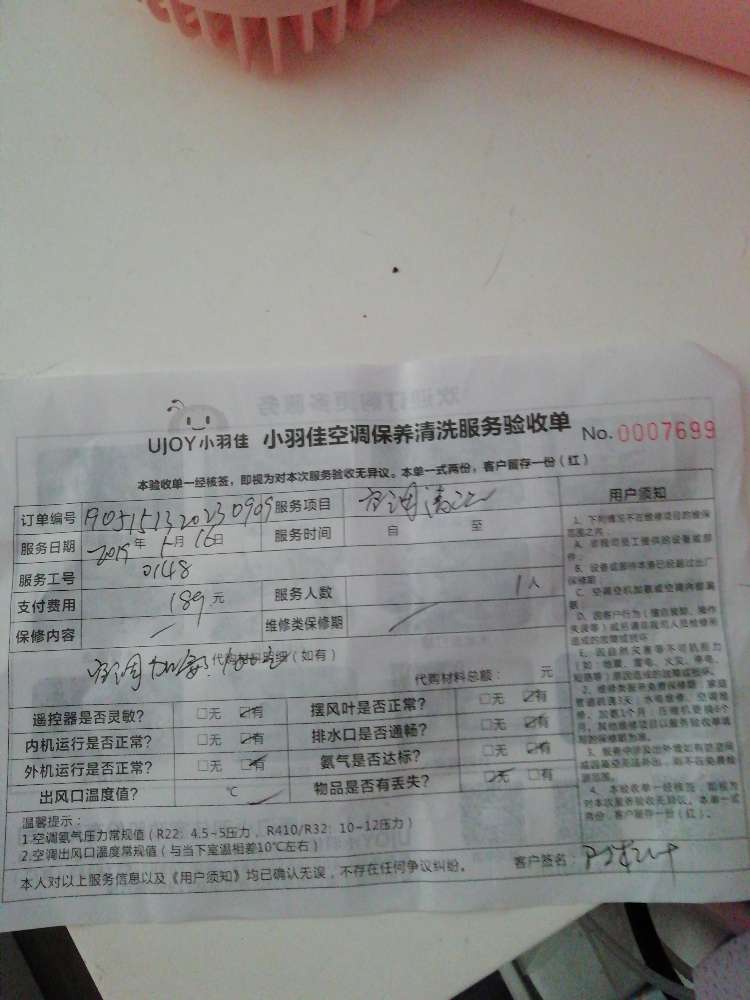 UJOY小羽佳 小羽佳空调保养清洗服务验收单 No.0007699
本验收单一经核签，即视为对本次服务验收无异议。本单一式两份，客户留存一份（红）
订单编号 服务项目 空调清洗
服务日期 2019年 月16日 服务时间 自 至
服务工号 0148
支付费用 189元 服务人数 1人
保修内容 维修类保修期
空调加氨 代购材料明细（如有）
代购材料总额： 元
遥控器是否灵敏? □无 ☑有 摆风叶是否正常? □无 ☑有
内机运行是否正常? □无 ☑有 排水口是否通畅? □无 ☑有
外机运行是否正常? □无 ☑有 氨气是否达标? □无 ☑有
出风口温度值? ℃ 物品是否有丢失? ☑无 □有
温馨提示：
1.空调氨气压力常规值（R22：4.5-5压力，R410/R32：10-12压力）
2.空调出风口温度常规值（与当下室温相差10℃左右）
本人对以上服务信息以及《用户须知》均已确认无误，不存在任何争议纠纷。 客户签名：
用户须知
1、下列情况不在维修项目的维保
范围之内：
A、非我司员工提供的设备或部
件；
B、设备或部件本身已经超过出厂
保修期；
C、空调空机加氨或空调内部漏
氨；
E、因自然灾害等不可抗拒力
（如：地震、雷电、火灾、停电、
4、本验收单一经核签，即视为
对本次服务验收无异议。本单一式
两份，客户留存一份（红）。